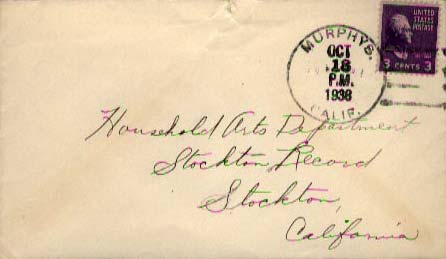 MURPHYS.
OCT
18
P.M.
1938
CALIF.
UNITED
STATES
POSTAGE
3 CENTS 3
Household Arts Department
Stockton Record
Stockton,
California